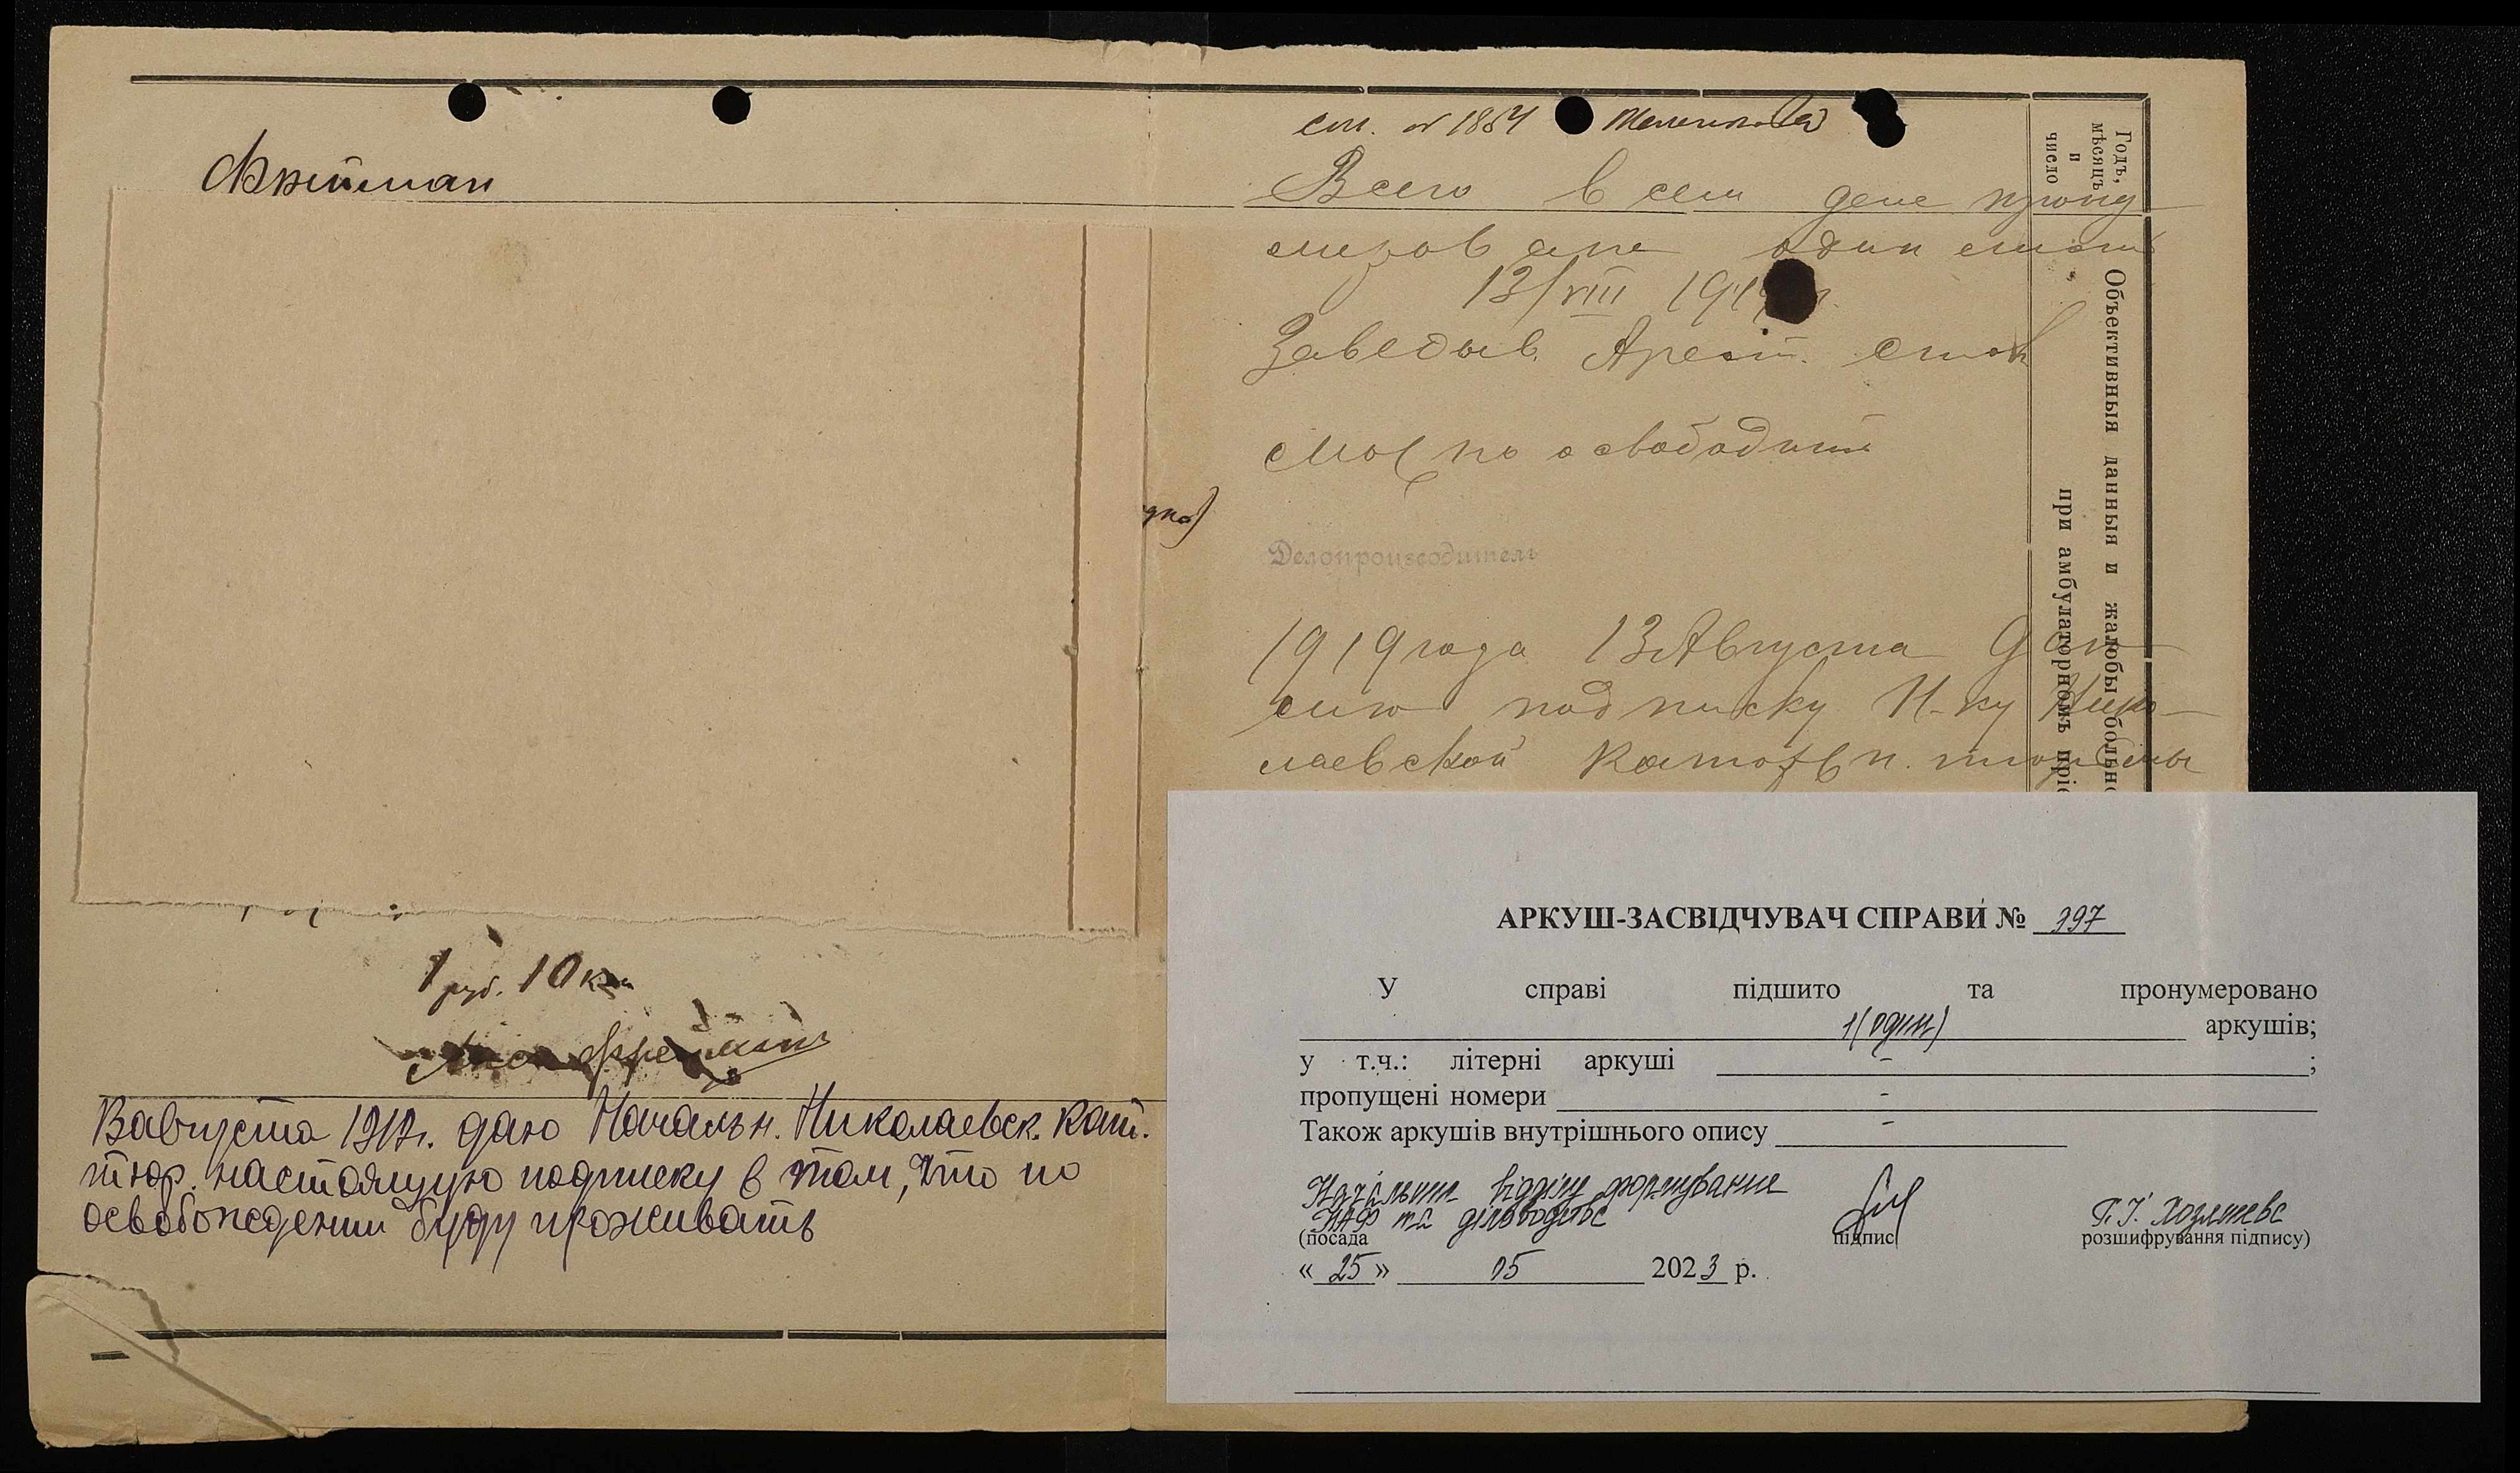 1 руб. 10 к
Фрейман
августа 1919г. даю Начальн. Николаевск. Кат.
тюр. настоящую подписку в том, что по
освобождении буду проживать
ст. № 1864
Всего в сем деле прону
мерован один лист
13/VIII 191
Заведыв. Арест. стол
Можно освободить
Делопроизводитель
1919 года 13 Августа Даю
сию подписку Н-ку Нико-
лаевской Каторжн. тюрьмы
Годъ,
мѣсяцъ
и
число
Объективныя данныя и жалобы больно
при амбулаторномъ пріе
АРКУШ-ЗАСВІДЧУВАЧ СПРАВИ № 397
У справі підшито та пронумеровано
1 (один) аркушів;
у т.ч.: літерні аркуші - ;
пропущені номери -
Також аркушів внутрішнього опису -
Начальник відділу формування
НАФ та діловодства
(посада підпис розшифрування підпису)
« 25 » 05 2023 р.